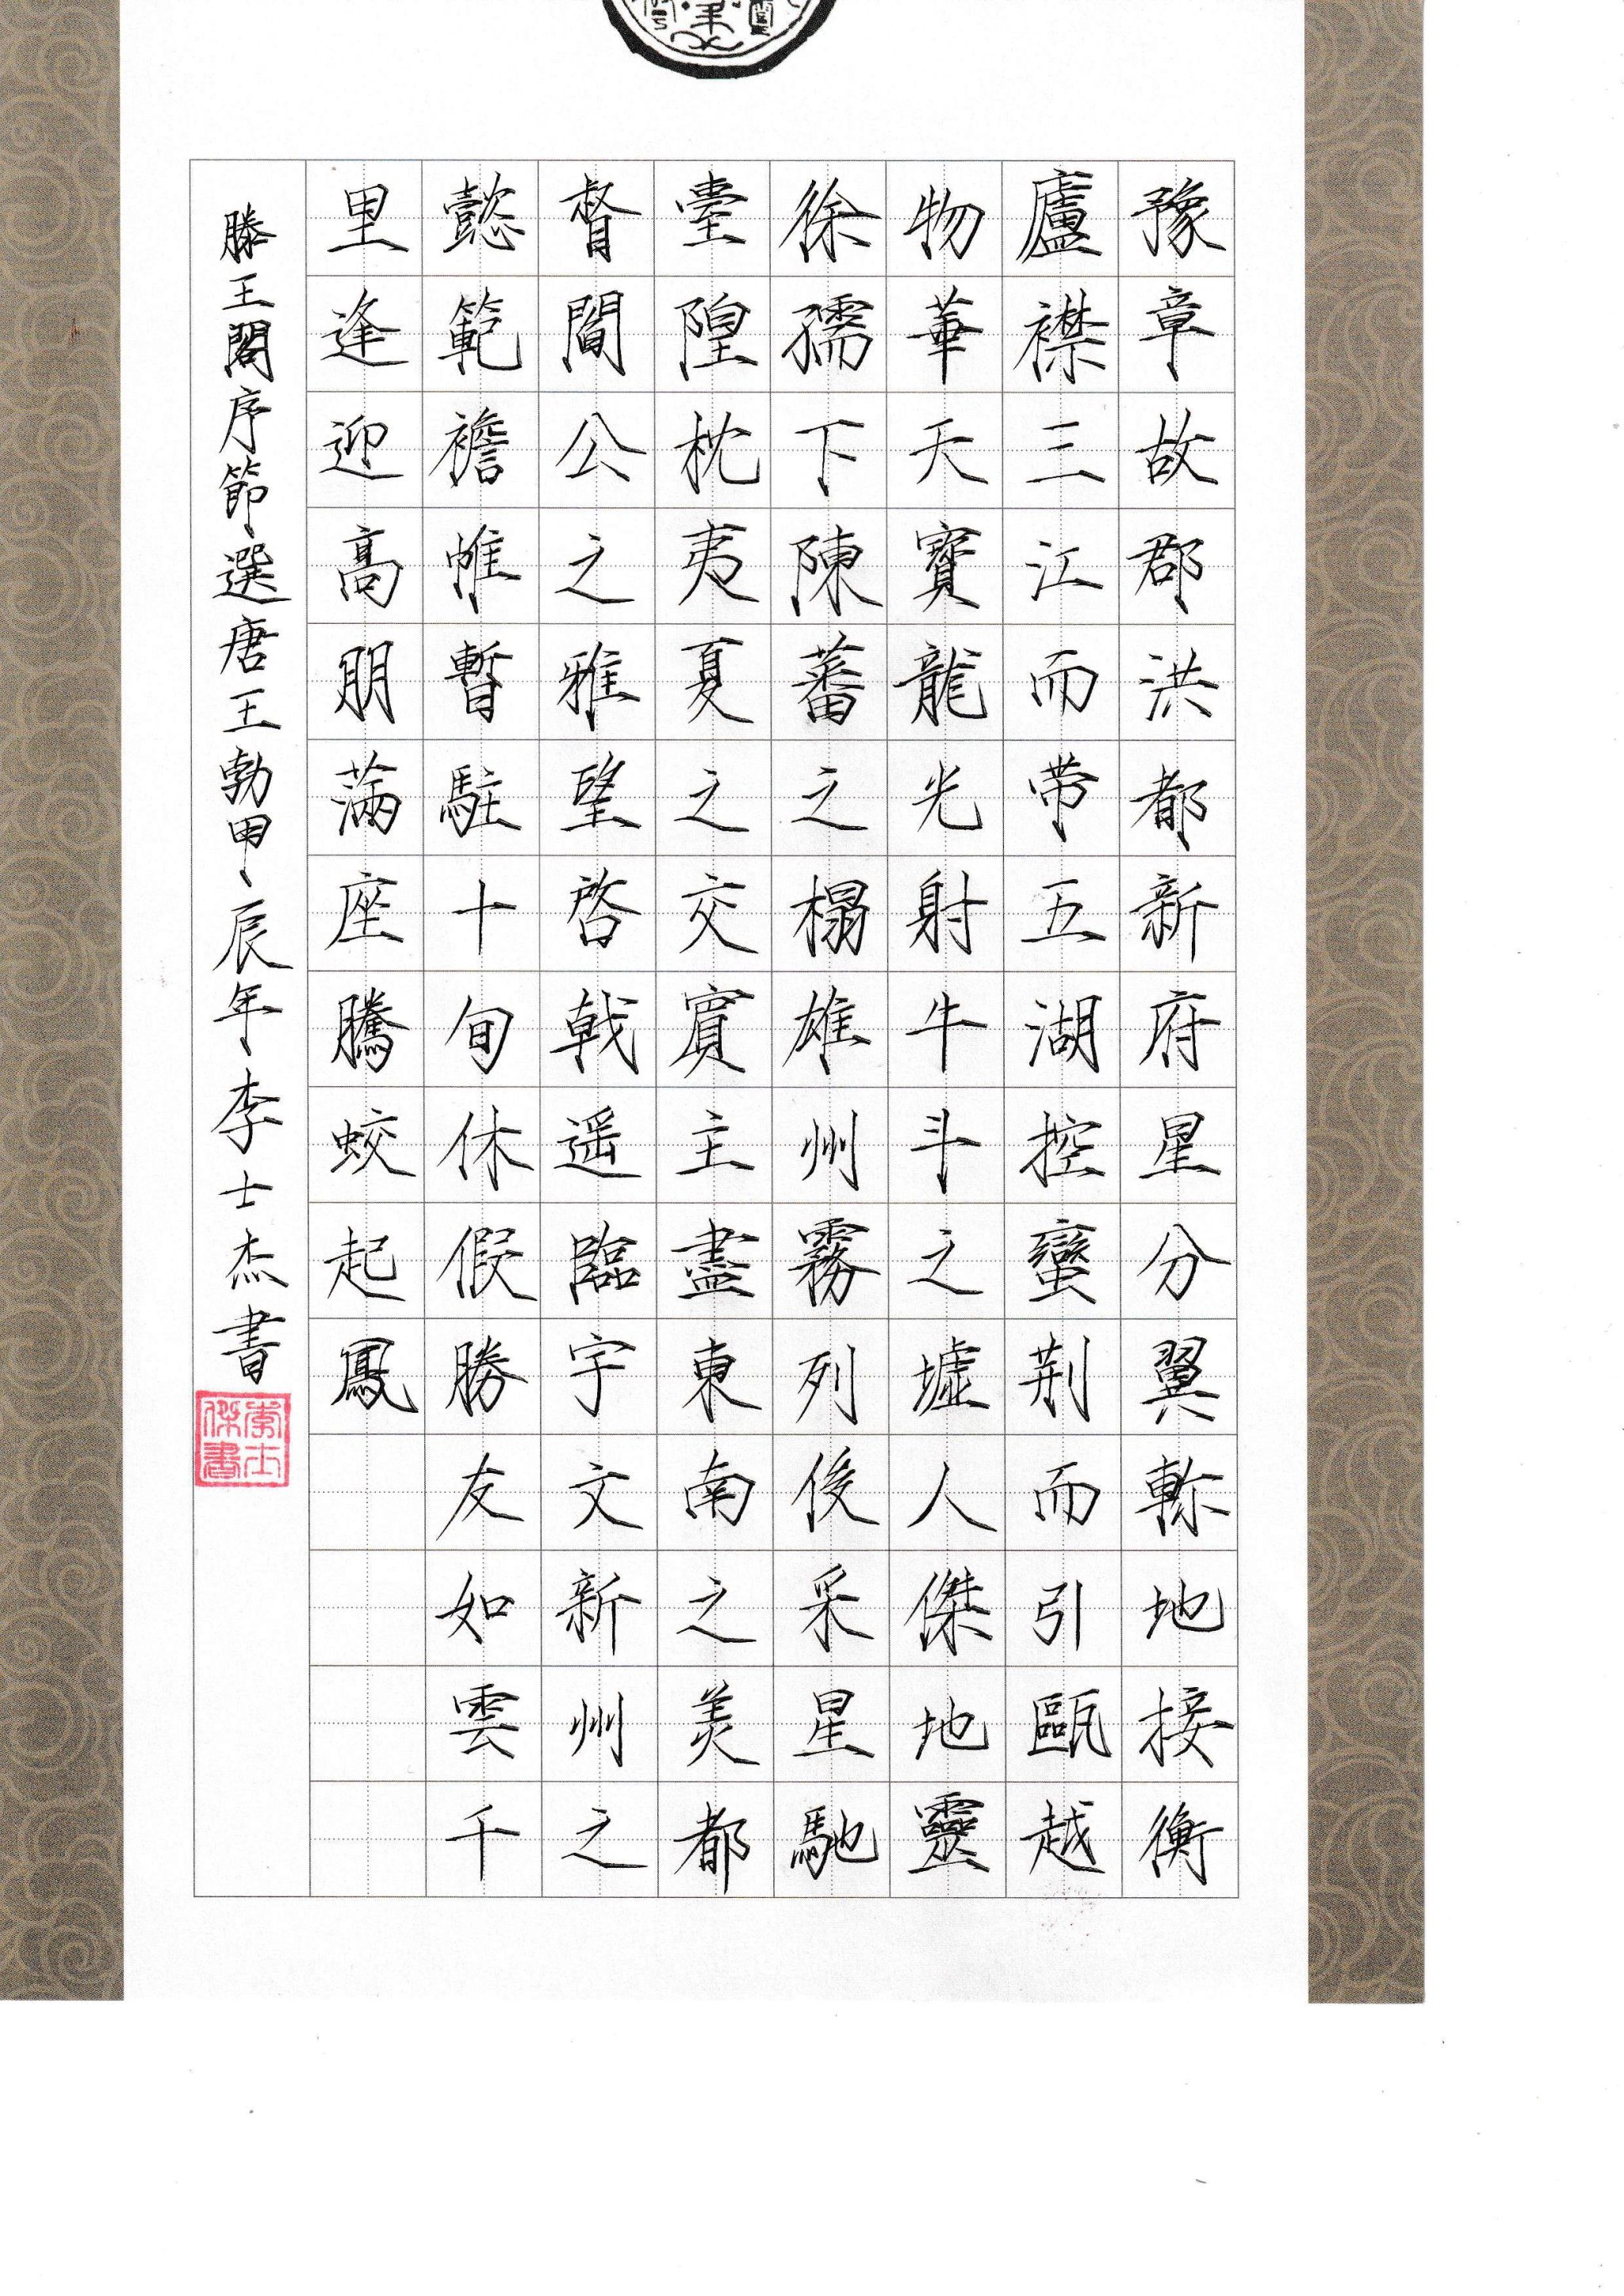 豫章故郡洪都新府星分翼軫地接衡
廬襟三江而带五湖控蠻荆而引甌越
物華天寳龍光射牛斗之墟人傑地靈
徐孺下陳蕃之榻雄州霧列俊采星馳
臺隍枕夷夏之交賔主盡東南之美都
督閻公之雅望啓戟遥臨宇文新州之
懿範襜帷暫駐十旬休假勝友如雲千
里逢迎高朋滿座騰蛟起鳳
滕王閣序節選唐王勃甲辰年李士杰書
李士傑書